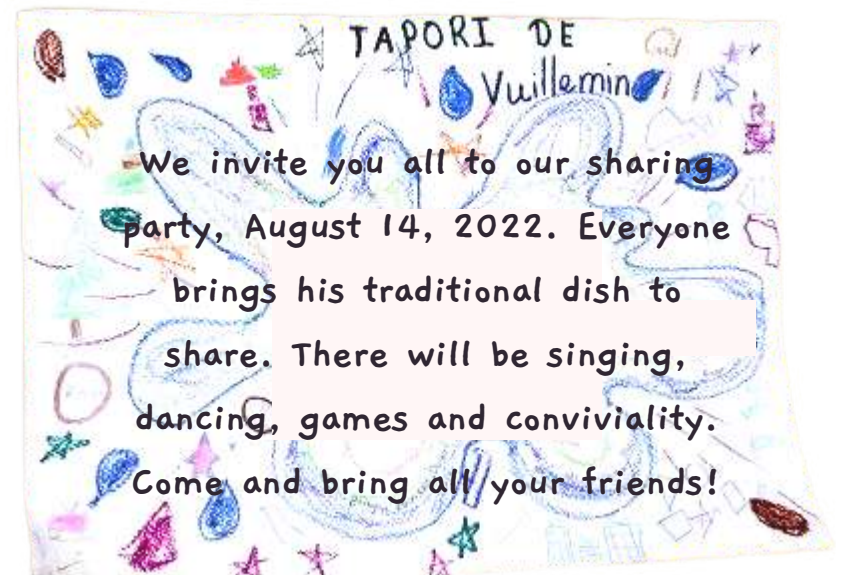 TAPORI DE
Vuillemin
We invite you all to our sharing
party, August 14, 2022. Everyone
brings his traditional dish to
share. There will be singing,
dancing, games and conviviality.
Come and bring all your friends!